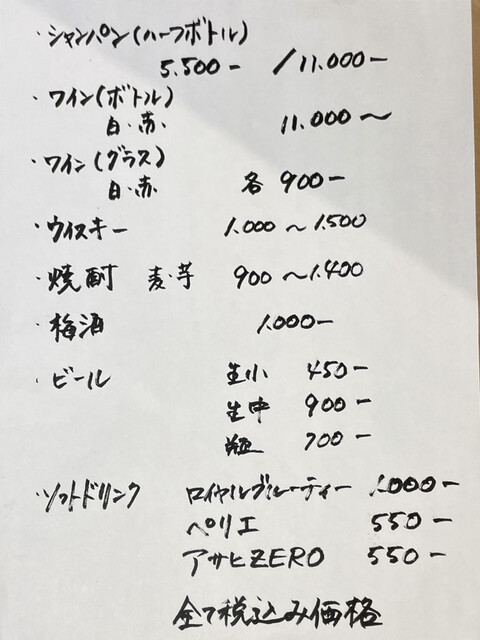 ・シャンパン(ハーフボトル)
5.500- / 11.000-
・ワイン(ボトル)
白・赤・ 11.000〜
・ワイン(グラス)
白・赤 各 900-
・ウイスキー 1.000〜1.500
・焼酎 麦・芋 900〜1.400
・梅酒 1.000-
・ビール 生小 450-
生中 900-
瓶 700-
・ソフトドリンク ロイヤルブルーティー 1.000-
ペリエ 550-
アサヒZERO 550-
全て税込み価格